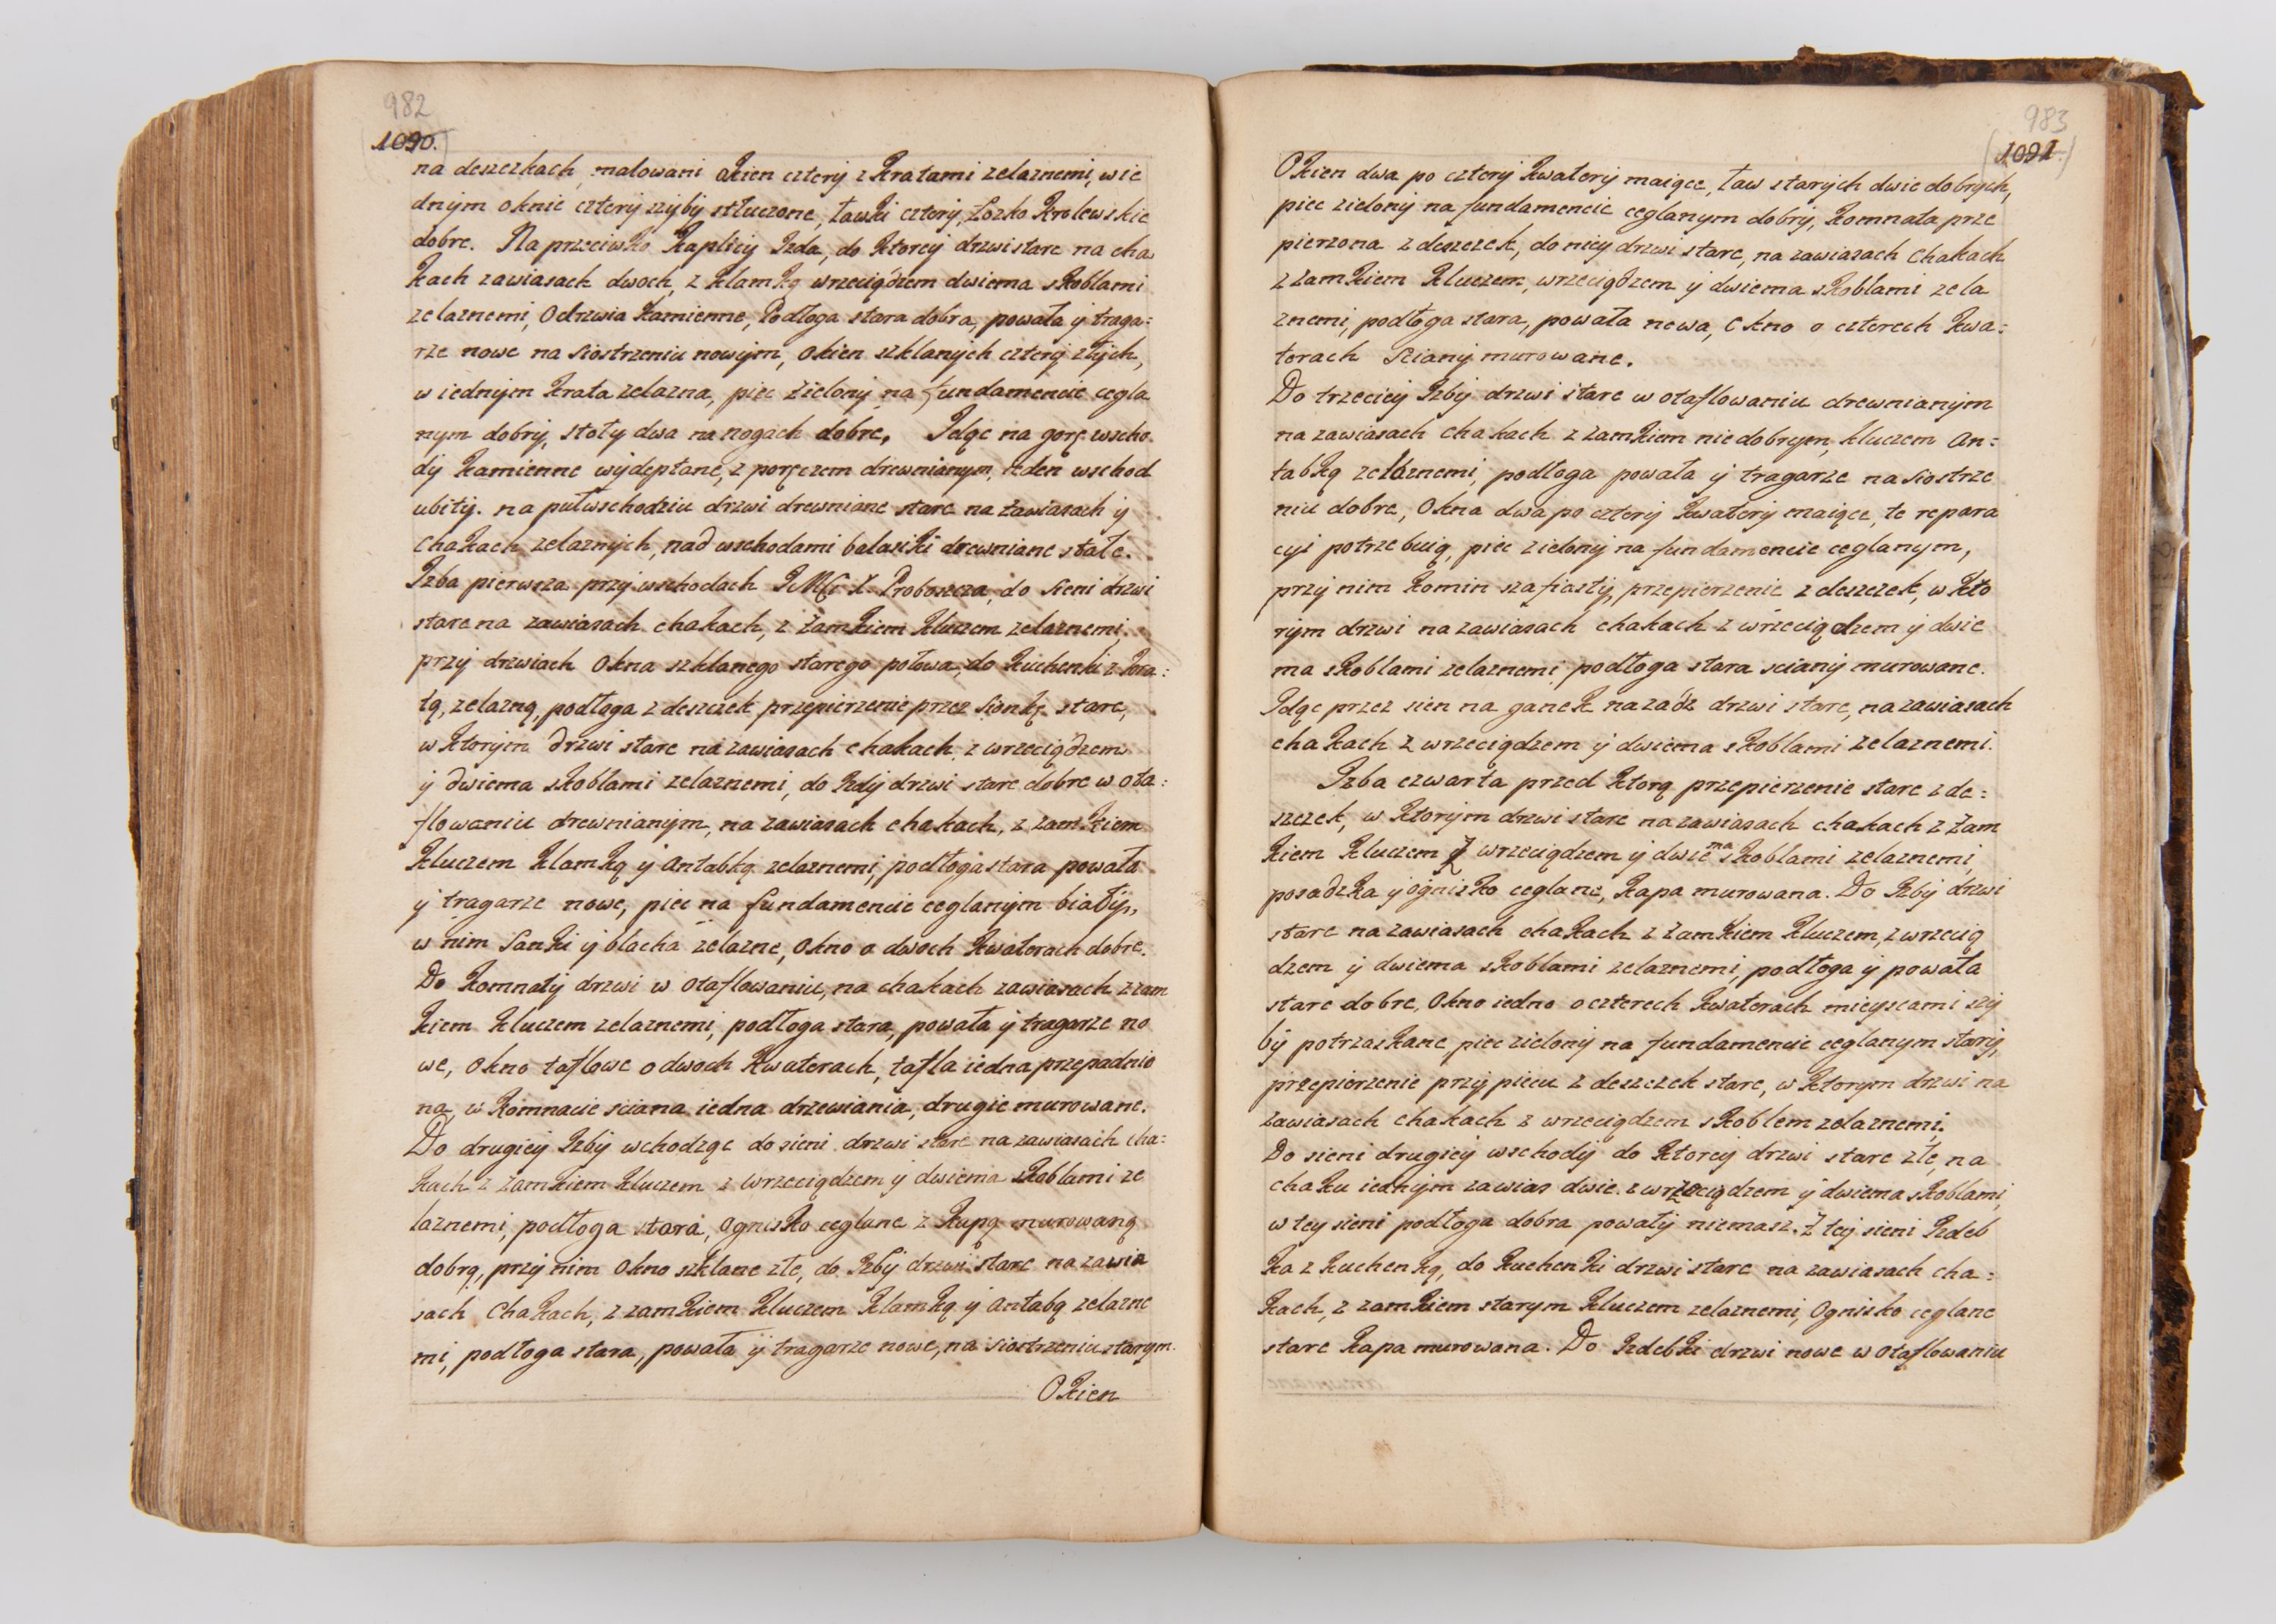 982
1090.
na deszczkach, malowani okien cztery z kratami zelaznemi, wie
dnym oknie cztery szyby stłuczone, ławki cztery, łozko krolewskie
dobre. Naprzeciwko Kaplicy Izda, do ktorey drzwi stare na cha
kach zawiasach dwoch, z klamką wrzeciądzem dwiema skoblami
zelaznemi, Odrzwia kamienne, Podłoga stara dobra, powała y traga:
rze nowe na siostrzeniu nowym, okien szklanych cztery złych,
w iednym krata zelazna, piec zielony na fundamencie cegla
nym dobry, stoły dwa na nogach dobre. Idąc na gorę wscho
dy kamienne wydeptane, z poręczem drewnianym, ieden wschod
ubity. na pułwschodziu drzwi drewniane stare na zawiasach y
chakach zelaznych, nad wschodami balasiki drewniane stałe.
Izba pierwsza przy wschodach IMCi X. Proboszcza, do sieni drzwi
stare na zawiasach chakach, z zamkiem kluczem zelaznemi.
przy drzwiach okna szklanego starego połowa, do kuchenki z kra:
tą, zelazną, podłoga z deszczek przepierzenie przez sionkę stare,
w ktorym drzwi stare na zawiasach chakach z wrzeciądzem
y dwiema skoblami zelaznemi, do Izdy drzwi stare dobre w ota:
flowaniu drewnianym, na zawiasach chakach, z zamkiem
kluczem klamką y antabką zelaznemi, podłoga stara powała
y tragarze nowe, piec na fundamencie ceglanym biały,
w nim sanki y blacha zelazne, okno o dwoch kwaterach dobre.
Do komnaty drzwi w otaflowaniu, na chakach zawiasach z zam
kiem kluczem zelaznemi, podłoga stara, powała y tragarze no
we, okno taflowe o dwoch kwaterach, tafla iedna przepadnio
na, w komnacie sciana iedna drzewiania, drugie murowane.
Do drugiey Izby wchodząc do sieni drzwi stare na zawiasach cha:
kach z zamkiem kluczem z wrzeciądzem y dwiema skoblami ze
laznemi, podłoga stara, ognisko ceglane z kapą murowaną
dobrą, przy nim okno szklane złe, do Izby drzwi stare na zawia
sach chakach, z zamkiem kluczem klamką y antabą zelazne
mi, podłoga stara, powała y tragarze nowe, na siostrzeniu starym.
Okien
983
1091.
Okien dwa po cztery kwatery maiące, ław starych dwie dobrych,
piec zielony na fundamencie ceglanym dobry, komnata prze
pierzona z deszczek, do niey drzwi stare, na zawiasach chakach
z zamkiem kluczem, wrzeciądzem y dwiema skoblami zela
znemi, podłoga stara, powała nowa, okno o czterech kwa:
terach sciany murowane.
Do trzeciey Izby drzwi stare w otaflowaniu drewnianym
na zawiasach chakach z zamkiem niedobrym, kluczem an:
tabką zelaznemi, podłoga powała y tragarze na siostrze
niu dobre, Okna dwa po cztery kwatery maiące, te repara
cyi potrzebuią, piec zielony na fundamencie ceglanym,
przy nim komin szafiasty, przepierzenie z deszczek, w kto
rym drzwi na zawiasach chakach z wrzeciądzem y dwie
ma skoblami zelaznemi, podłoga stara sciany murowane.
Idąc przez sien na ganek nazadz drzwi stare, na zawiasach
chakach z wrzeciądzem y dwiema skoblami zelaznemi.
Izba czwarta przed ktorą przepierzenie stare z de:
szczek, w ktorym drzwi stare na zawiasach chakach z zam
kiem kluczem z wrzeciądzem y dwiema skoblami zelaznemi,
posadzka y ognisko ceglane, kapa murowana. Do Izby drzwi
stare na zawiasach chakach z zamkiem kluczem, z wrzecią
dzem y dwiema skoblami zelaznemi, podłoga y powała
stare dobre, Okno iedno o czterech kwaterach mieyscami szy
by potrzaskane, piec zielony na fundamencie ceglanym stary,
przepierzenie przy piecu z deszczek stare, w ktorym drzwi na
zawiasach chakach z wrzeciądzem skoblem zelaznemi.
Do sieni drugiey wschody do ktorey drzwi stare złe, na
chaku iednym zawias dwie z wrzeciądzem y dwiema skoblami,
w tey sieni podłoga dobra powały niemasz. Z tey sieni Izdeb
ka z kuchenką, do kuchenki drzwi stare na zawiasach cha:
kach, z zamkiem starym kluczem zelaznemi, Ognisko ceglane
stare kapa murowana. Do Izdebki drzwi nowe w otaflowaniu